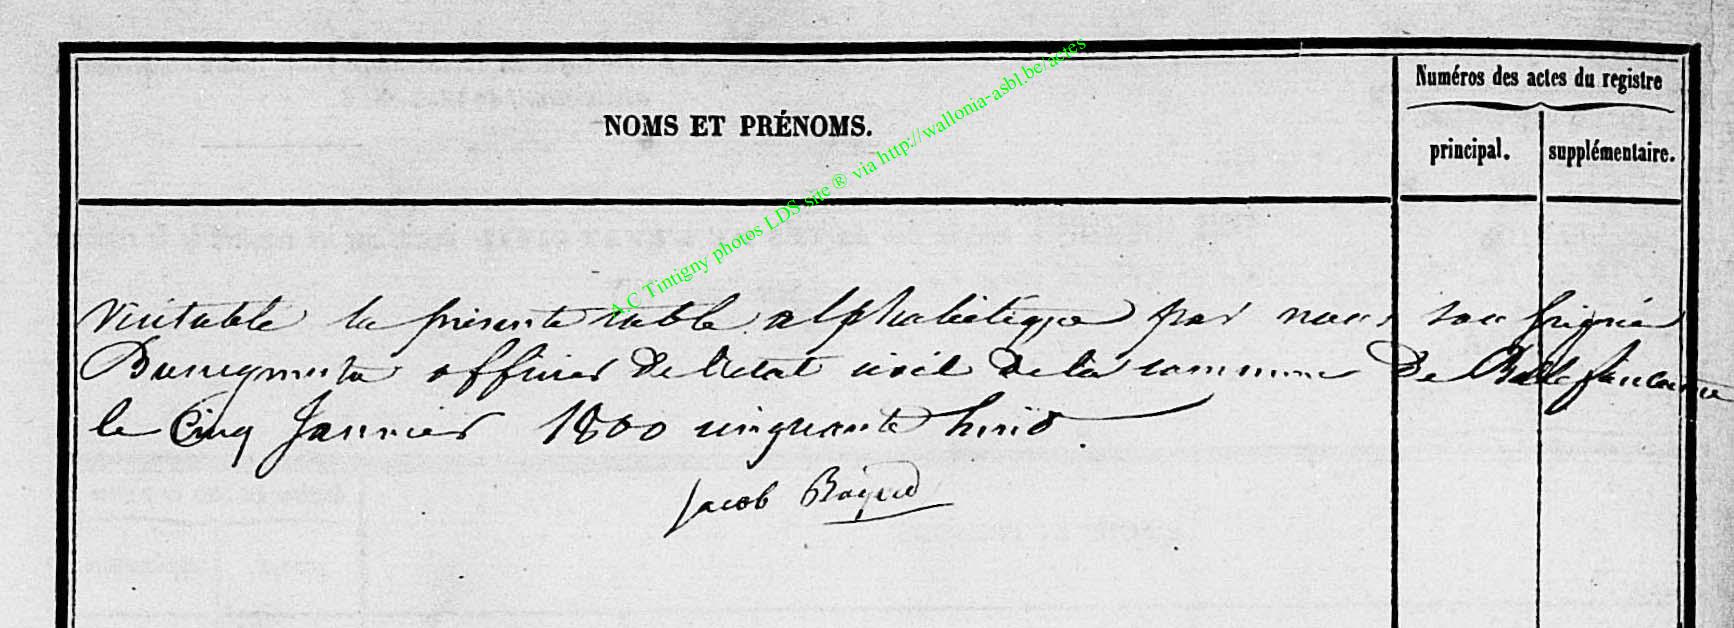 Numéros des actes du registre
NOMS ET PRÉNOMS.
principal. supplémentaire.
A C Tintigny photos LDS site ® via http://wallonia-asbl.be/actes
la présente table alphabétique par nous sousigné
officier de l'etat civil de la commune de Bellefontaine
le Cinq Janvier 1800 cinquante huit.
Jacob